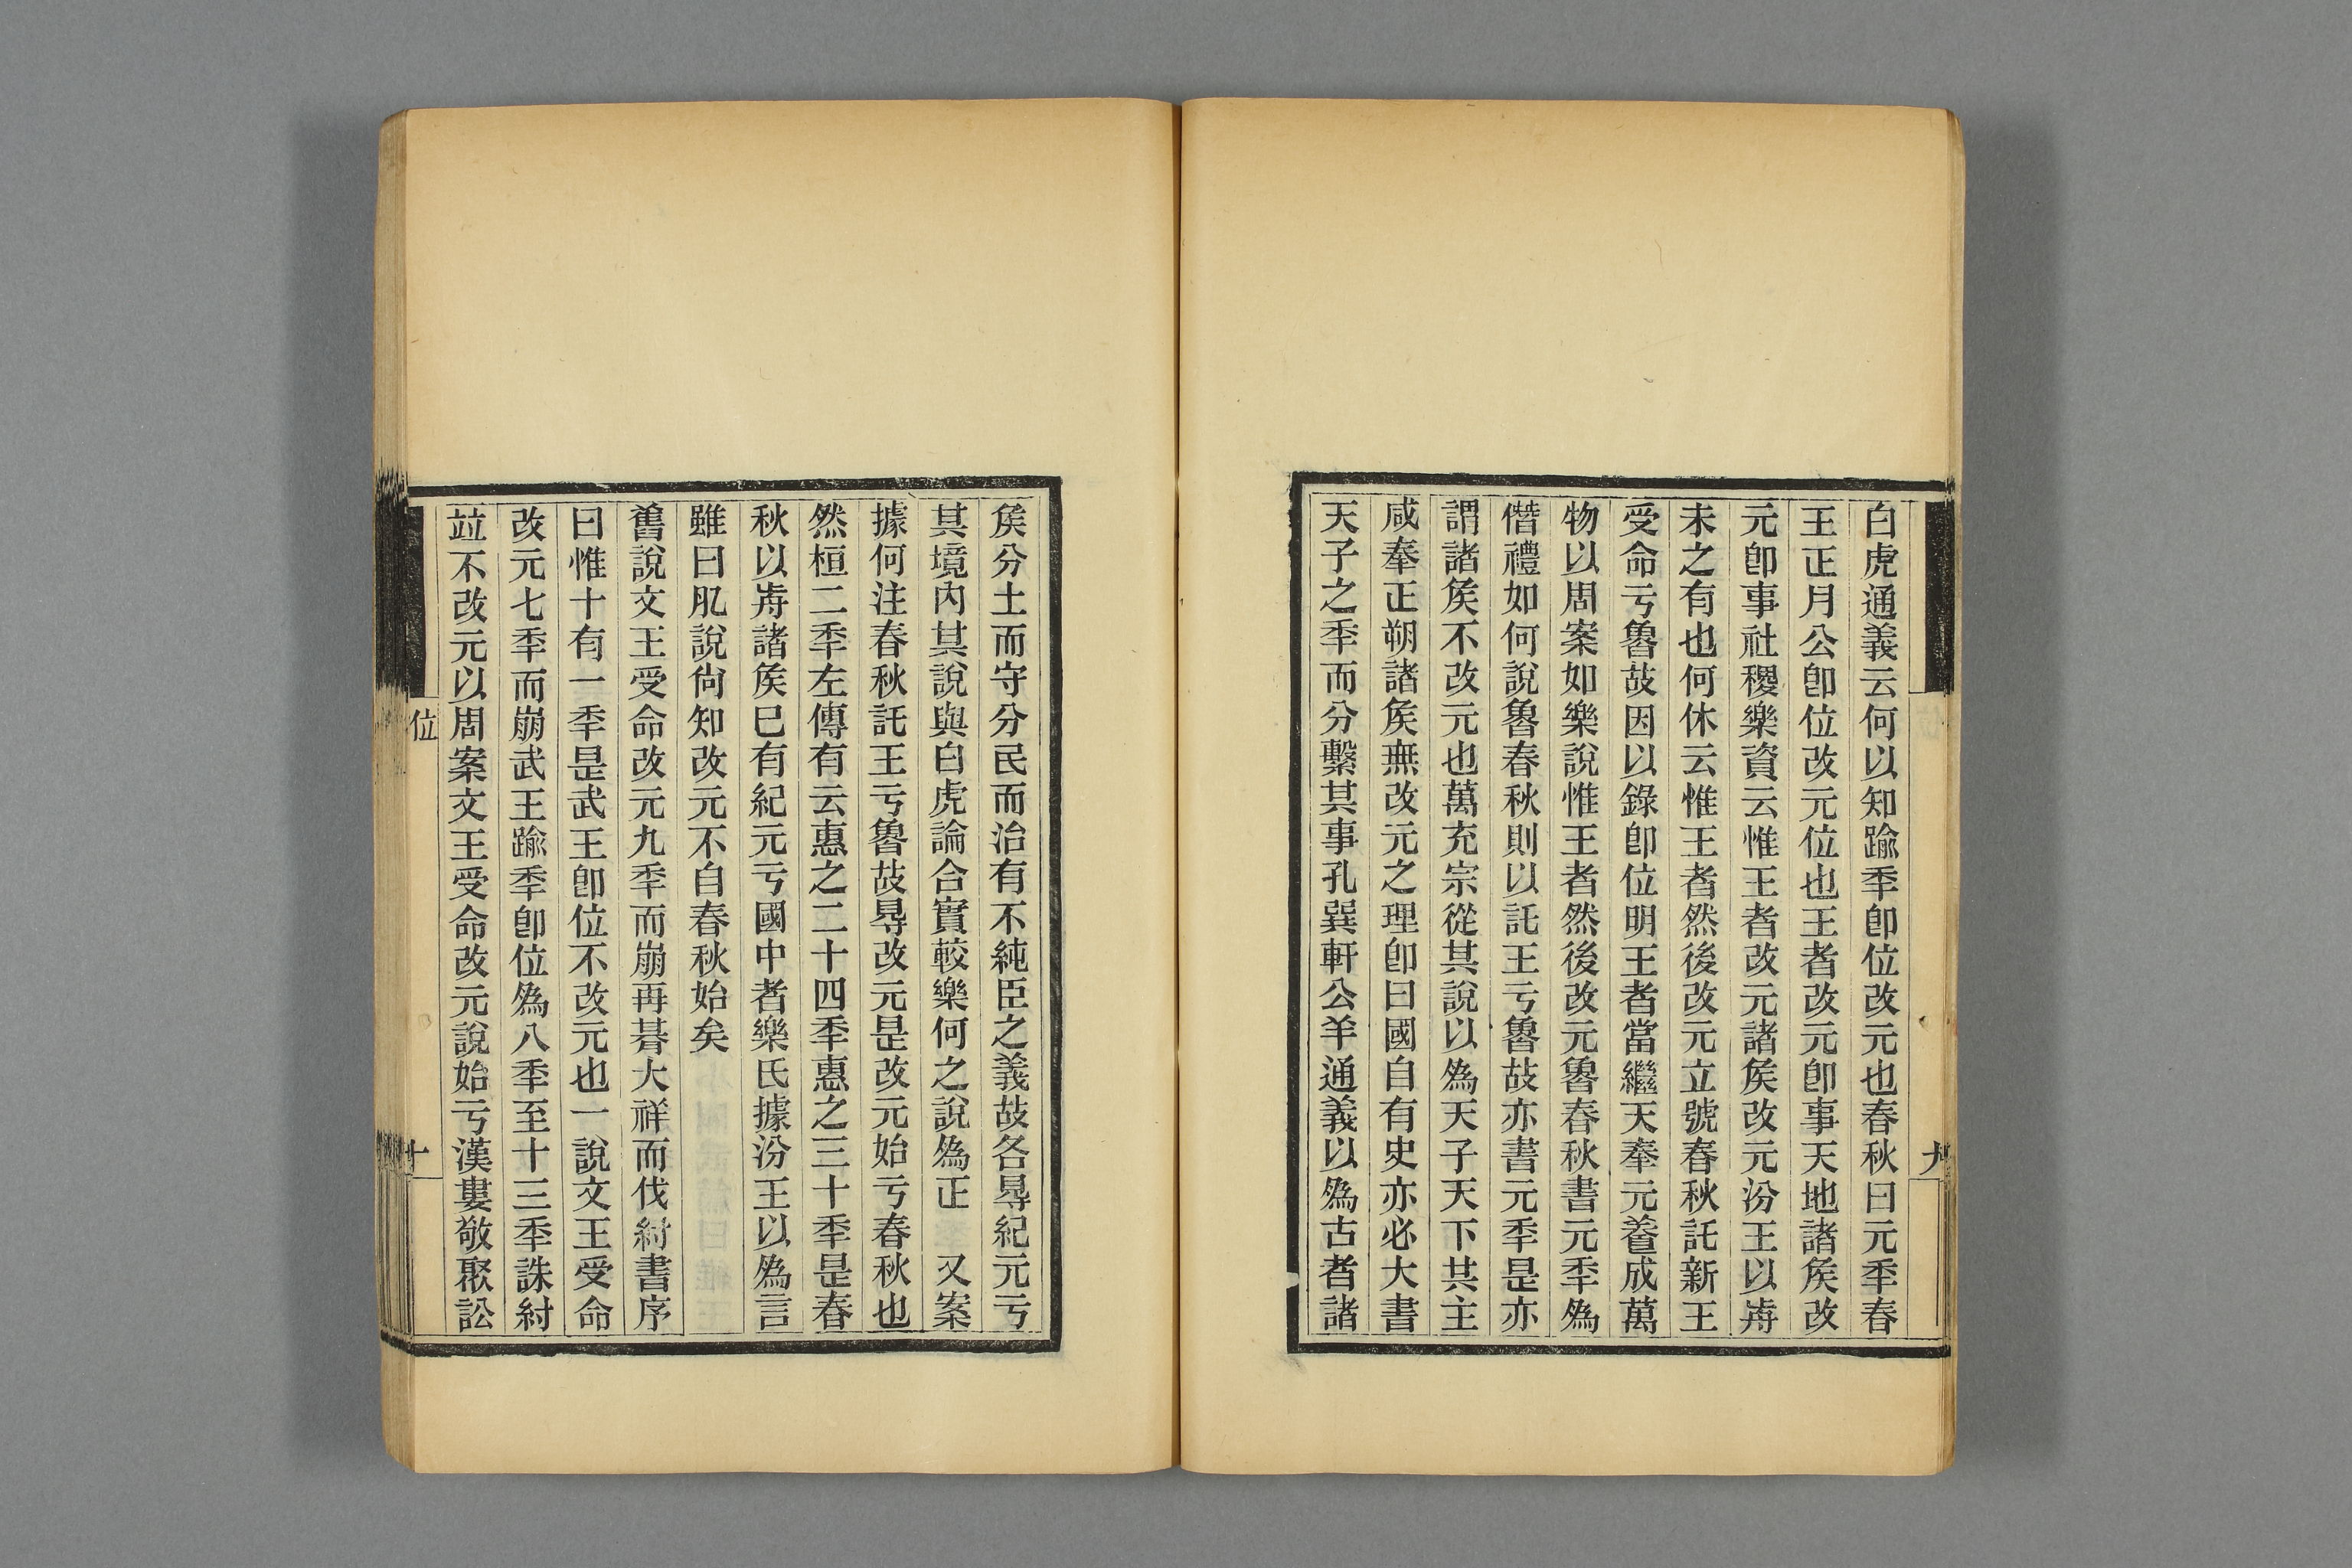 白虎通義云何以知踰秊卽位改元也春秋曰元秊春
王正月公卽位改元位也王者改元卽事天地諸矦改
元卽事社稷樂資云惟王者改元諸矦改元汾王以歬
未之有也何休云惟王者然後改元立號春秋託新王
受命亏魯故因以錄卽位明王者當繼天奉元養成萬
物以周案如樂說惟王者然後改元魯春秋書元秊爲
僭禮如何說魯春秋則以託王亏魯故亦書元秊是亦
謂諸矦不改元也萬充宗從其說以爲天子天下共主
咸奉正朔諸矦無改元之理卽曰國自有史亦必大書
天子之秊而分繫其事孔巽軒公羊通義以爲古者諸
九
矦分土而守分民而治有不純臣之義故各㝵紀元亏
其境內其說與白虎論合實較樂何之說爲正　又案
據何注春秋託王亏魯故㝵改元是改元始亏春秋也
然桓二秊左傳有云惠之二十四秊惠之三十秊是春
秋以歬諸矦巳有紀元亏國中者樂氏據汾王以爲言
雖曰肊說尙知改元不自春秋始矣
舊說文王受命改元九秊而崩再朞大祥而伐紂書序
曰惟十有一秊是武王卽位不改元也一說文王受命
改元七秊而崩武王踰秊卽位爲八秊至十三秊誅紂
竝不改元以周案文王受命改元說始亏漢婁敬聚訟
位
十